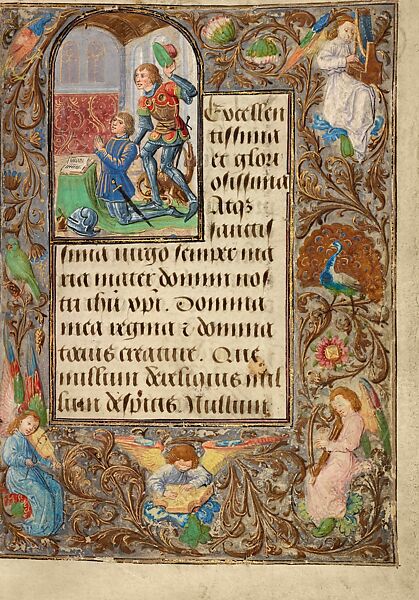 Excellen
tissima
et glori
osissima
Atqȝ
sanctis
sima virgo semper ma
ria mater domini nos
tri ihū xp̄i. Domina
mea regina ⁊ domina
totius creature. Que
nullum dereliquis nul
lum despicis. Nullum